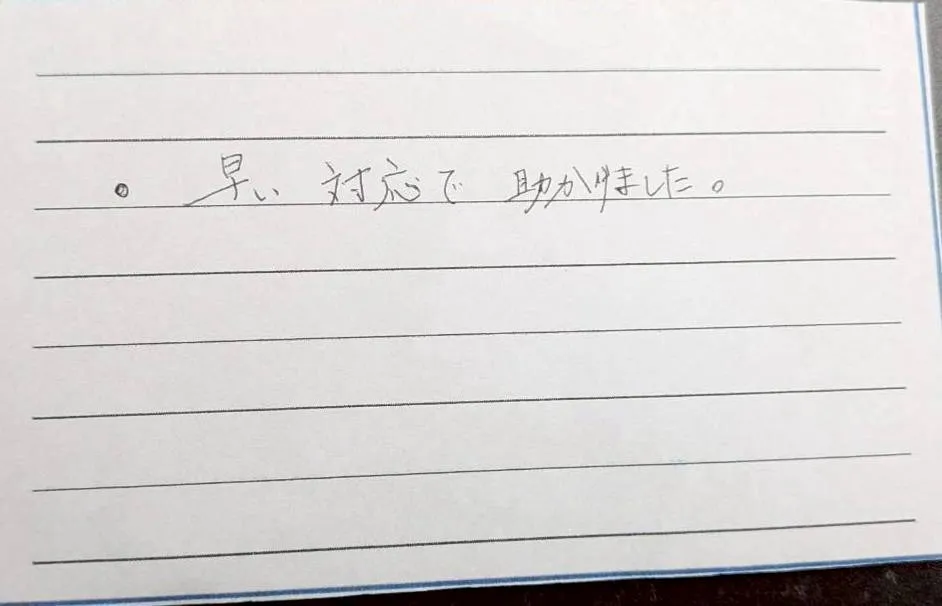 。 早い 対応で 助かりました。